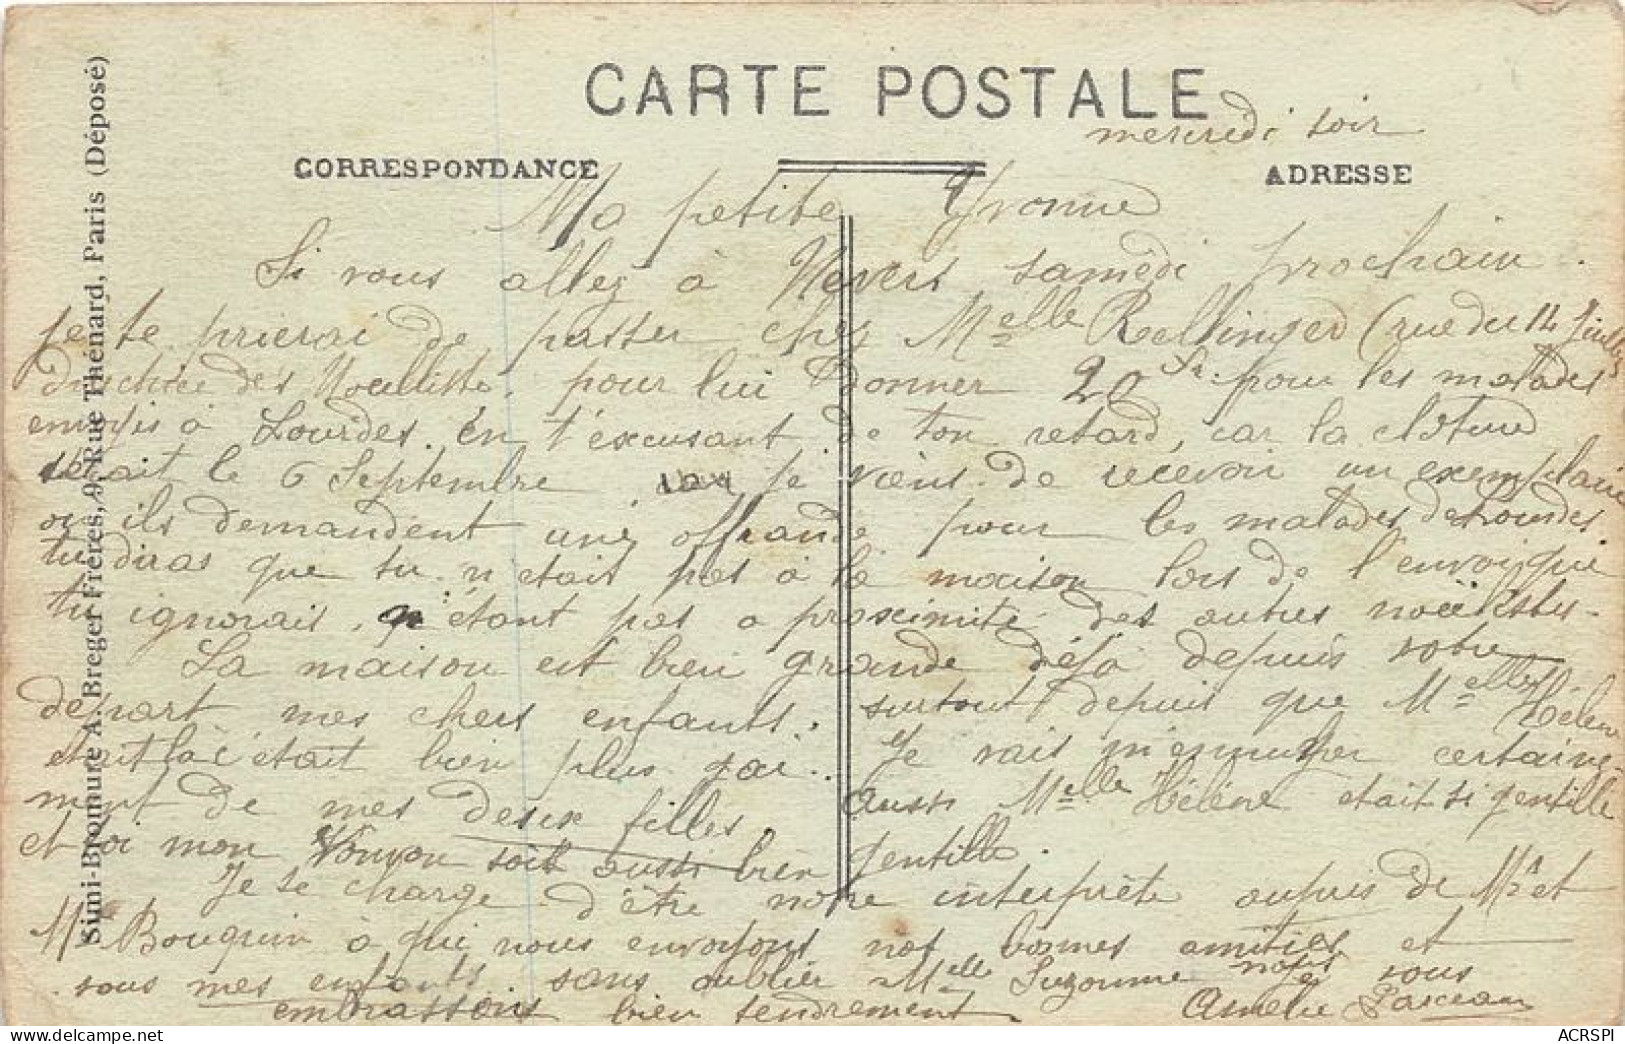 CARTE POSTALE
mercredi soir
CORRESPONDANCE
ADRESSE
Ma petite Yvonne
Si vous allez à Nevers samedi prochain.
je te prierai de passer chez Melle (rue du 14 Juillet
des pour lui donner 20 fr. pour les malades
envoyés à Lourdes. en t'excusant de ton retard, car la cloture
était le 6 Septembre je viens de recevoir un exemplaire
ou ils demandent une offrande pour les malades de Lourdes
tu diras que tu n'étais pas à la maison lors de l'envoi, que
tu ignorais, n'étant pas a proximité des autres
La maison est bien grande déjà depuis votre
depart mes chers enfants. surtout depuis que Melle Hélène
etait là c'était bien plus gai.. Je vais m'ennuyer certaine-
ment de mes deux filles. Aussi Melle Hélène etait si gentille
et toi mon soit aussi bien gentille.
Je te charge d'être notre interprète aupris de Mr et
Me Bouquin à qui nous envoyons nos bonnes amitiés et
vous mes enfants sans oublier Melle Suzanne nous vous
embrassons bien tendrement. Amelie
Simi-Bromure A. Breger Frères, 9, Rue Thénard, Paris (Déposé)
ACRSPI